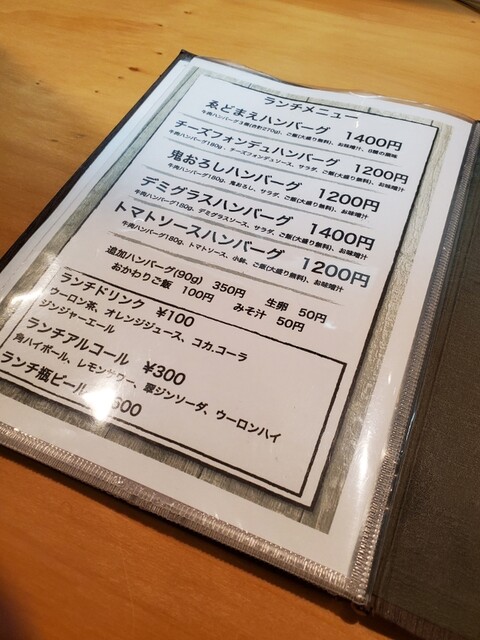 ランチメニュー
ゑどまえハンバーグ 1400円
牛肉ハンバーグ3種(合計270g)、ご飯(大盛り無料)、お味噌汁、8種の薬味
チーズフォンデュハンバーグ 1200円
牛肉ハンバーグ180g、チーズフォンデュソース、サラダ、ご飯(大盛り無料)、お味噌汁
鬼おろしハンバーグ 1200円
牛肉ハンバーグ180g、鬼おろし、サラダ、ご飯(大盛り無料)、お味噌汁
デミグラスハンバーグ 1400円
牛肉ハンバーグ180g、デミグラスソース、サラダ、ご飯(大盛り無料)、お味噌汁
トマトソースハンバーグ 1200円
牛肉ハンバーグ180g、トマトソース、小鉢、ご飯(大盛り無料)、お味噌汁
追加ハンバーグ(90g) 350円 生卵 50円
おかわりご飯 100円 みそ汁 50円
ランチドリンク ¥100
ウーロン茶、オレンジジュース、コカ.コーラ
ジンジャーエール
ランチアルコール ¥300
角ハイボール、レモンサワー、翠ジンソーダ、ウーロンハイ
ランチ瓶ビール 600